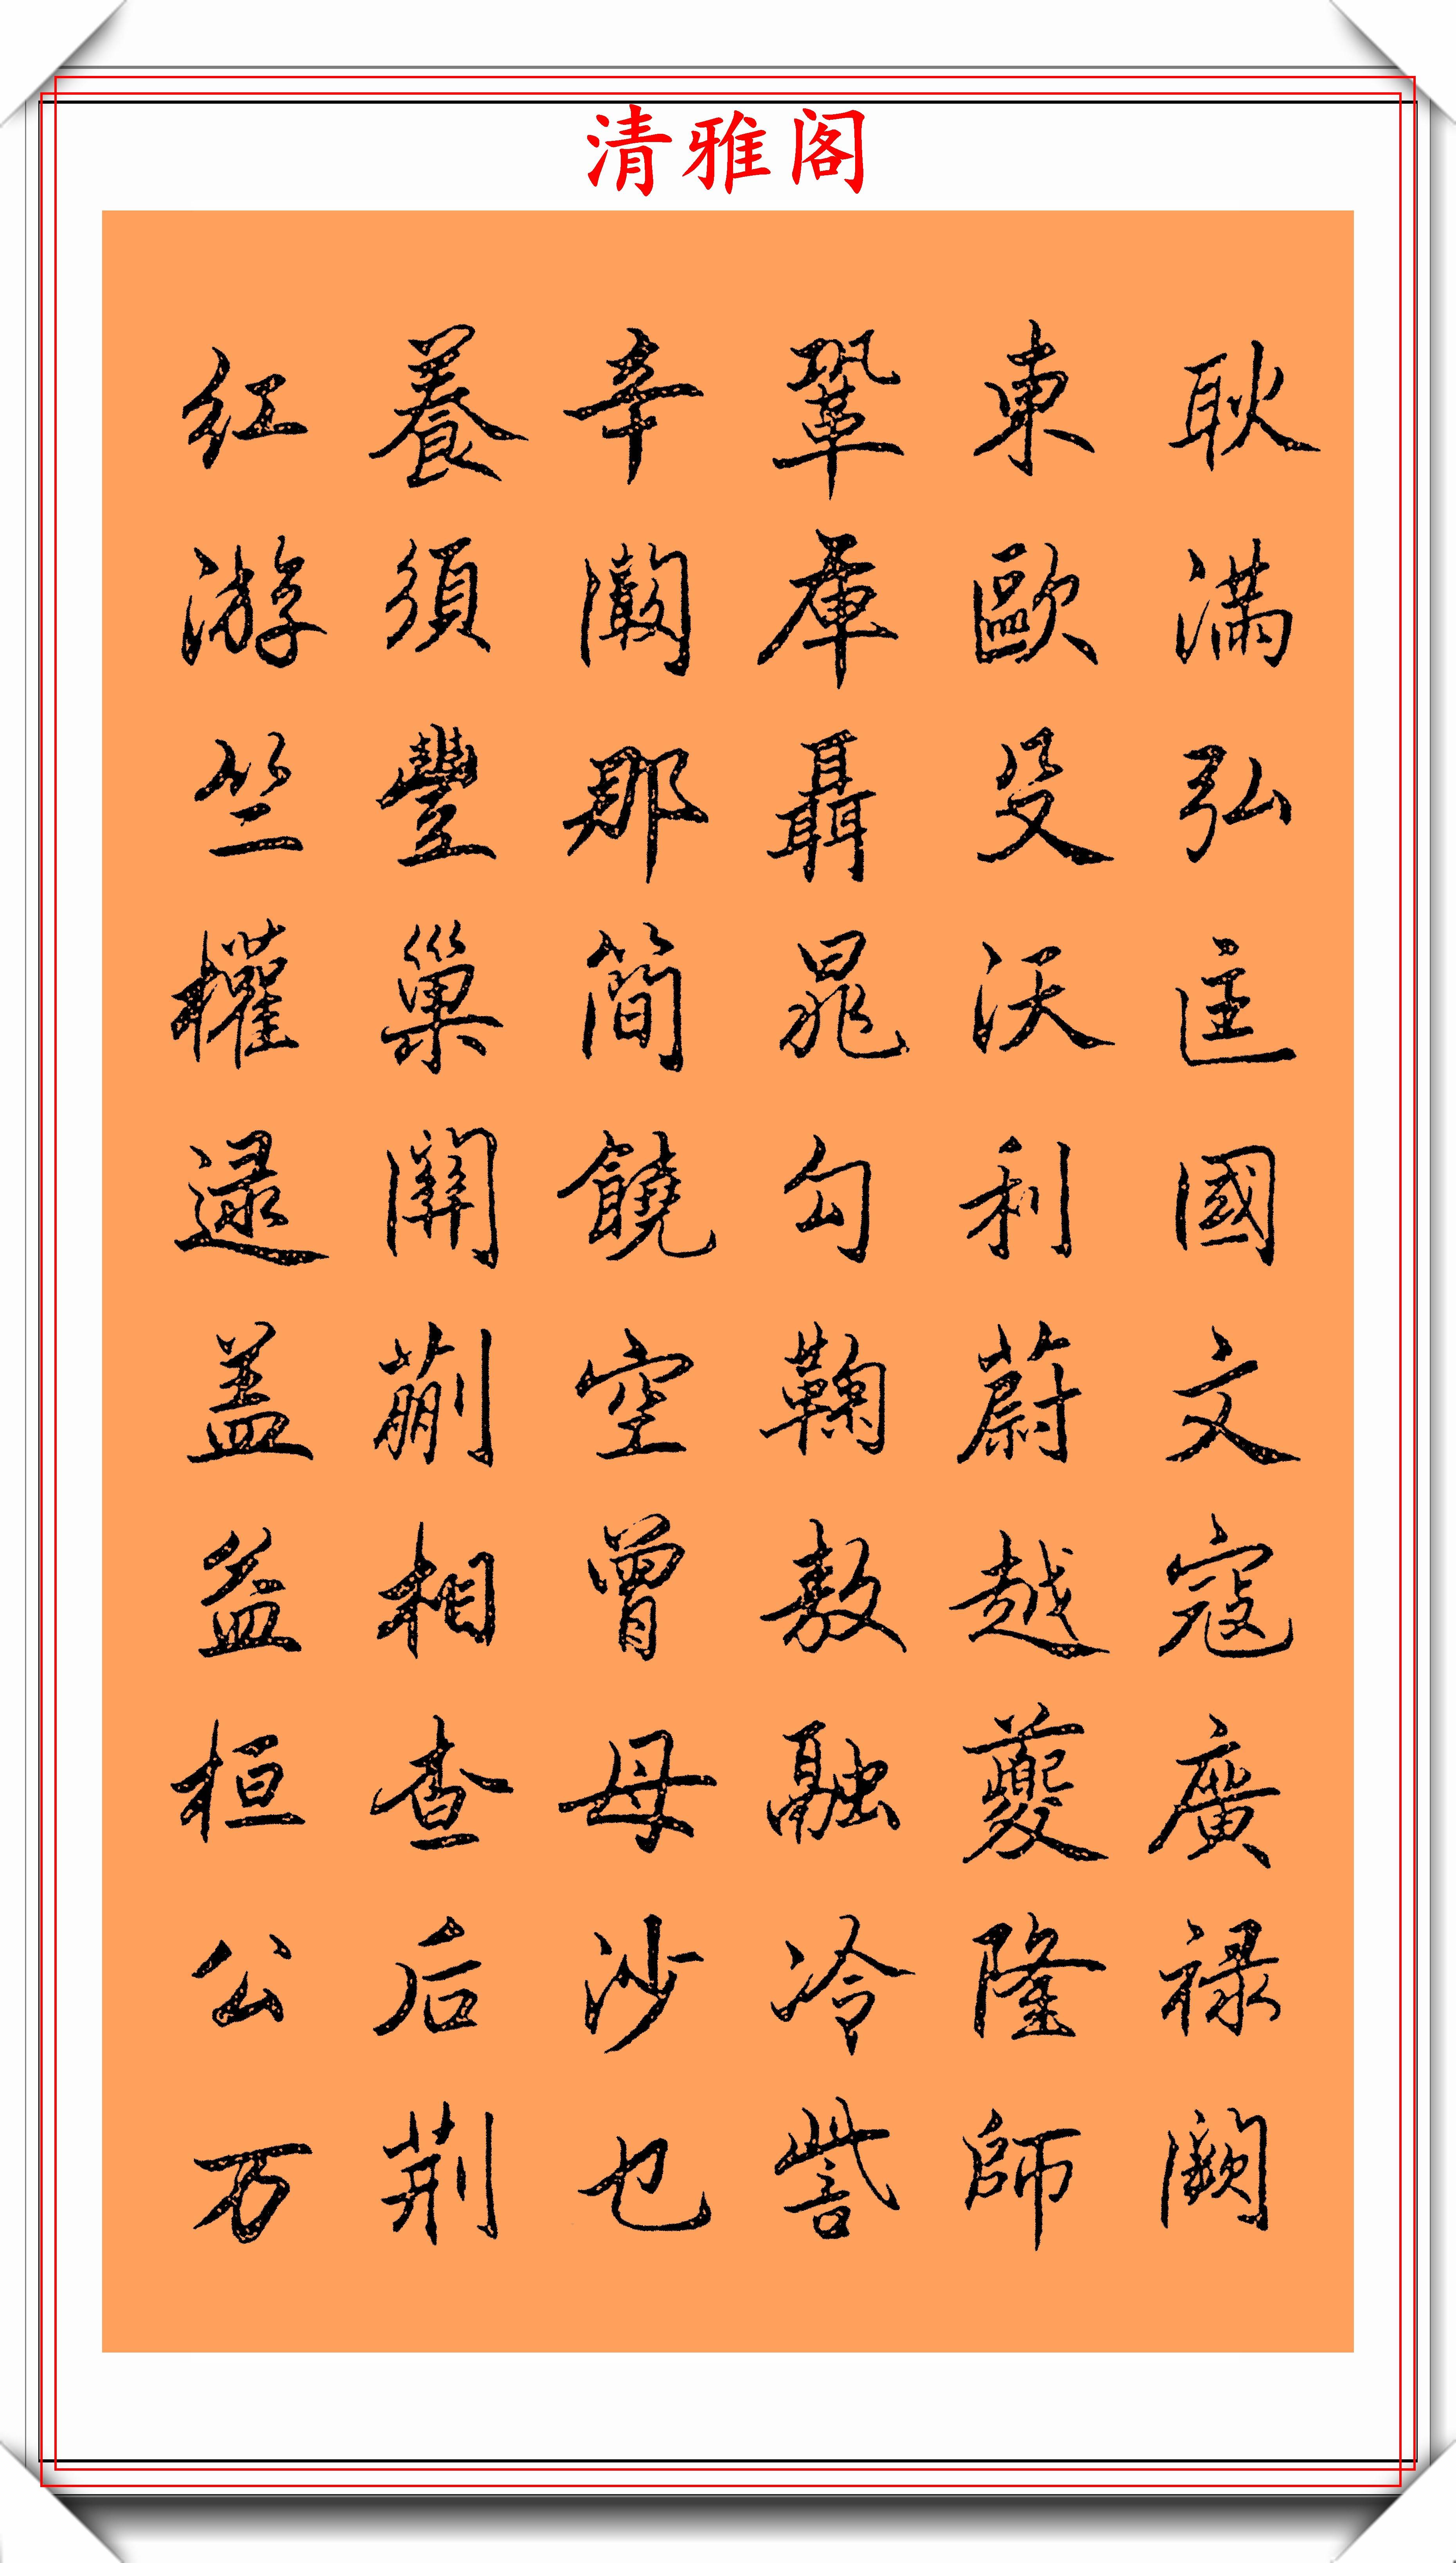 清雅阁
耿滿弘匡國文寇廣禄闕
東歐殳沃利蔚越夔隆師
鞏庫聶晁勾鞠敖融冷訾
辛闞那簡饒空曾母沙乜
養須豐巢關蒯相查后荊
紅游竺權逯盖益桓公万